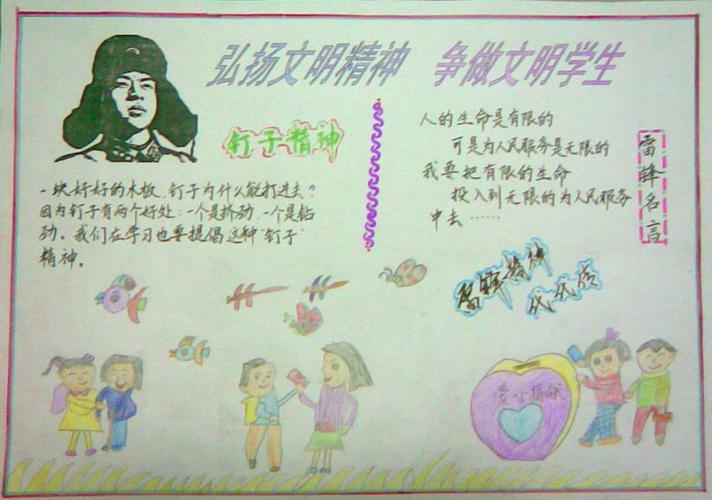 弘扬文明精神 争做文明学生
钉子精神
一块好好的木板，钉子为什么能打进去？
因为钉子有两个好处：一个是挤劲，一个是钻
劲。我们在学习也要提倡这种“钉子”
精神。
人的生命是有限的
可是为人民服务是无限的
我要把有限的生命
投入到无限的为人民服务
中去……
雷锋名言
雷锋精神
代代传
爱心捐献